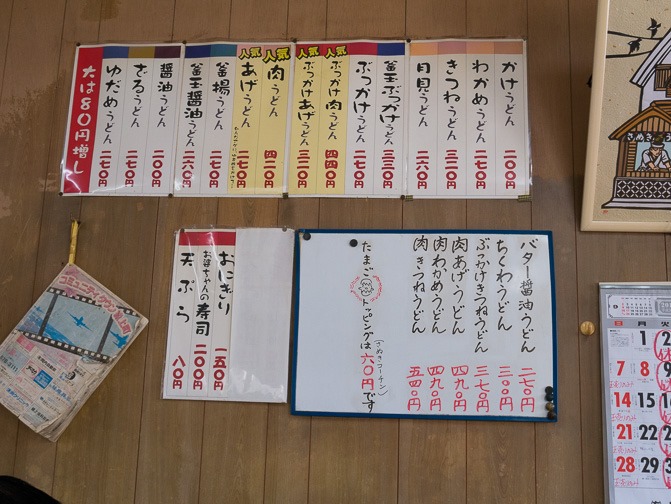 かけうどん 二〇〇円
わかめうどん 二七〇円
きつねうどん 三二〇円
月見うどん 二六〇円
釜玉ぶっかけうどん 三二〇円
ぶっかけうどん 二七〇円
人気 ぶっかけ肉うどん 四四〇円
人気 ぶっかけあげうどん 三二〇円
人気 肉うどん 四二〇円
人気 あげうどん 二七〇円
釜揚うどん 二七〇円
釜玉醤油うどん 二六〇円
醤油うどん 二〇〇円
ざるうどん 二七〇円
ゆだめうどん 二七〇円
大は80円増し
バター醤油うどん 二七〇円
ちくわうどん 三〇〇円
ぶっかけきつねうどん 三七〇円
肉あげうどん 四九〇円
肉わかめうどん 四九〇円
肉きつねうどん 五四〇円
たまごトッピングは六〇円です
(さぬきコーチン)
おにぎり 一五〇円
お婆ちゃんの寿司 二〇〇円
天ぷら 八〇円
コミュニティ
さぬき
8 月 火
1 2
7 8 9
14 15
21 22
28 29